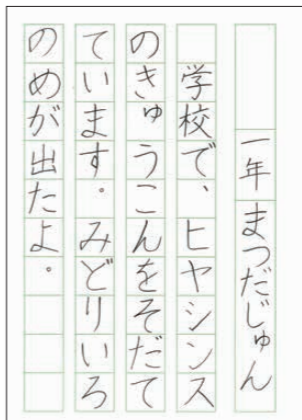 一年 まつだじゅん
学校で、ヒヤシンス
のきゅうこんをそだて
ています。みどりいろ
のめが出たよ。